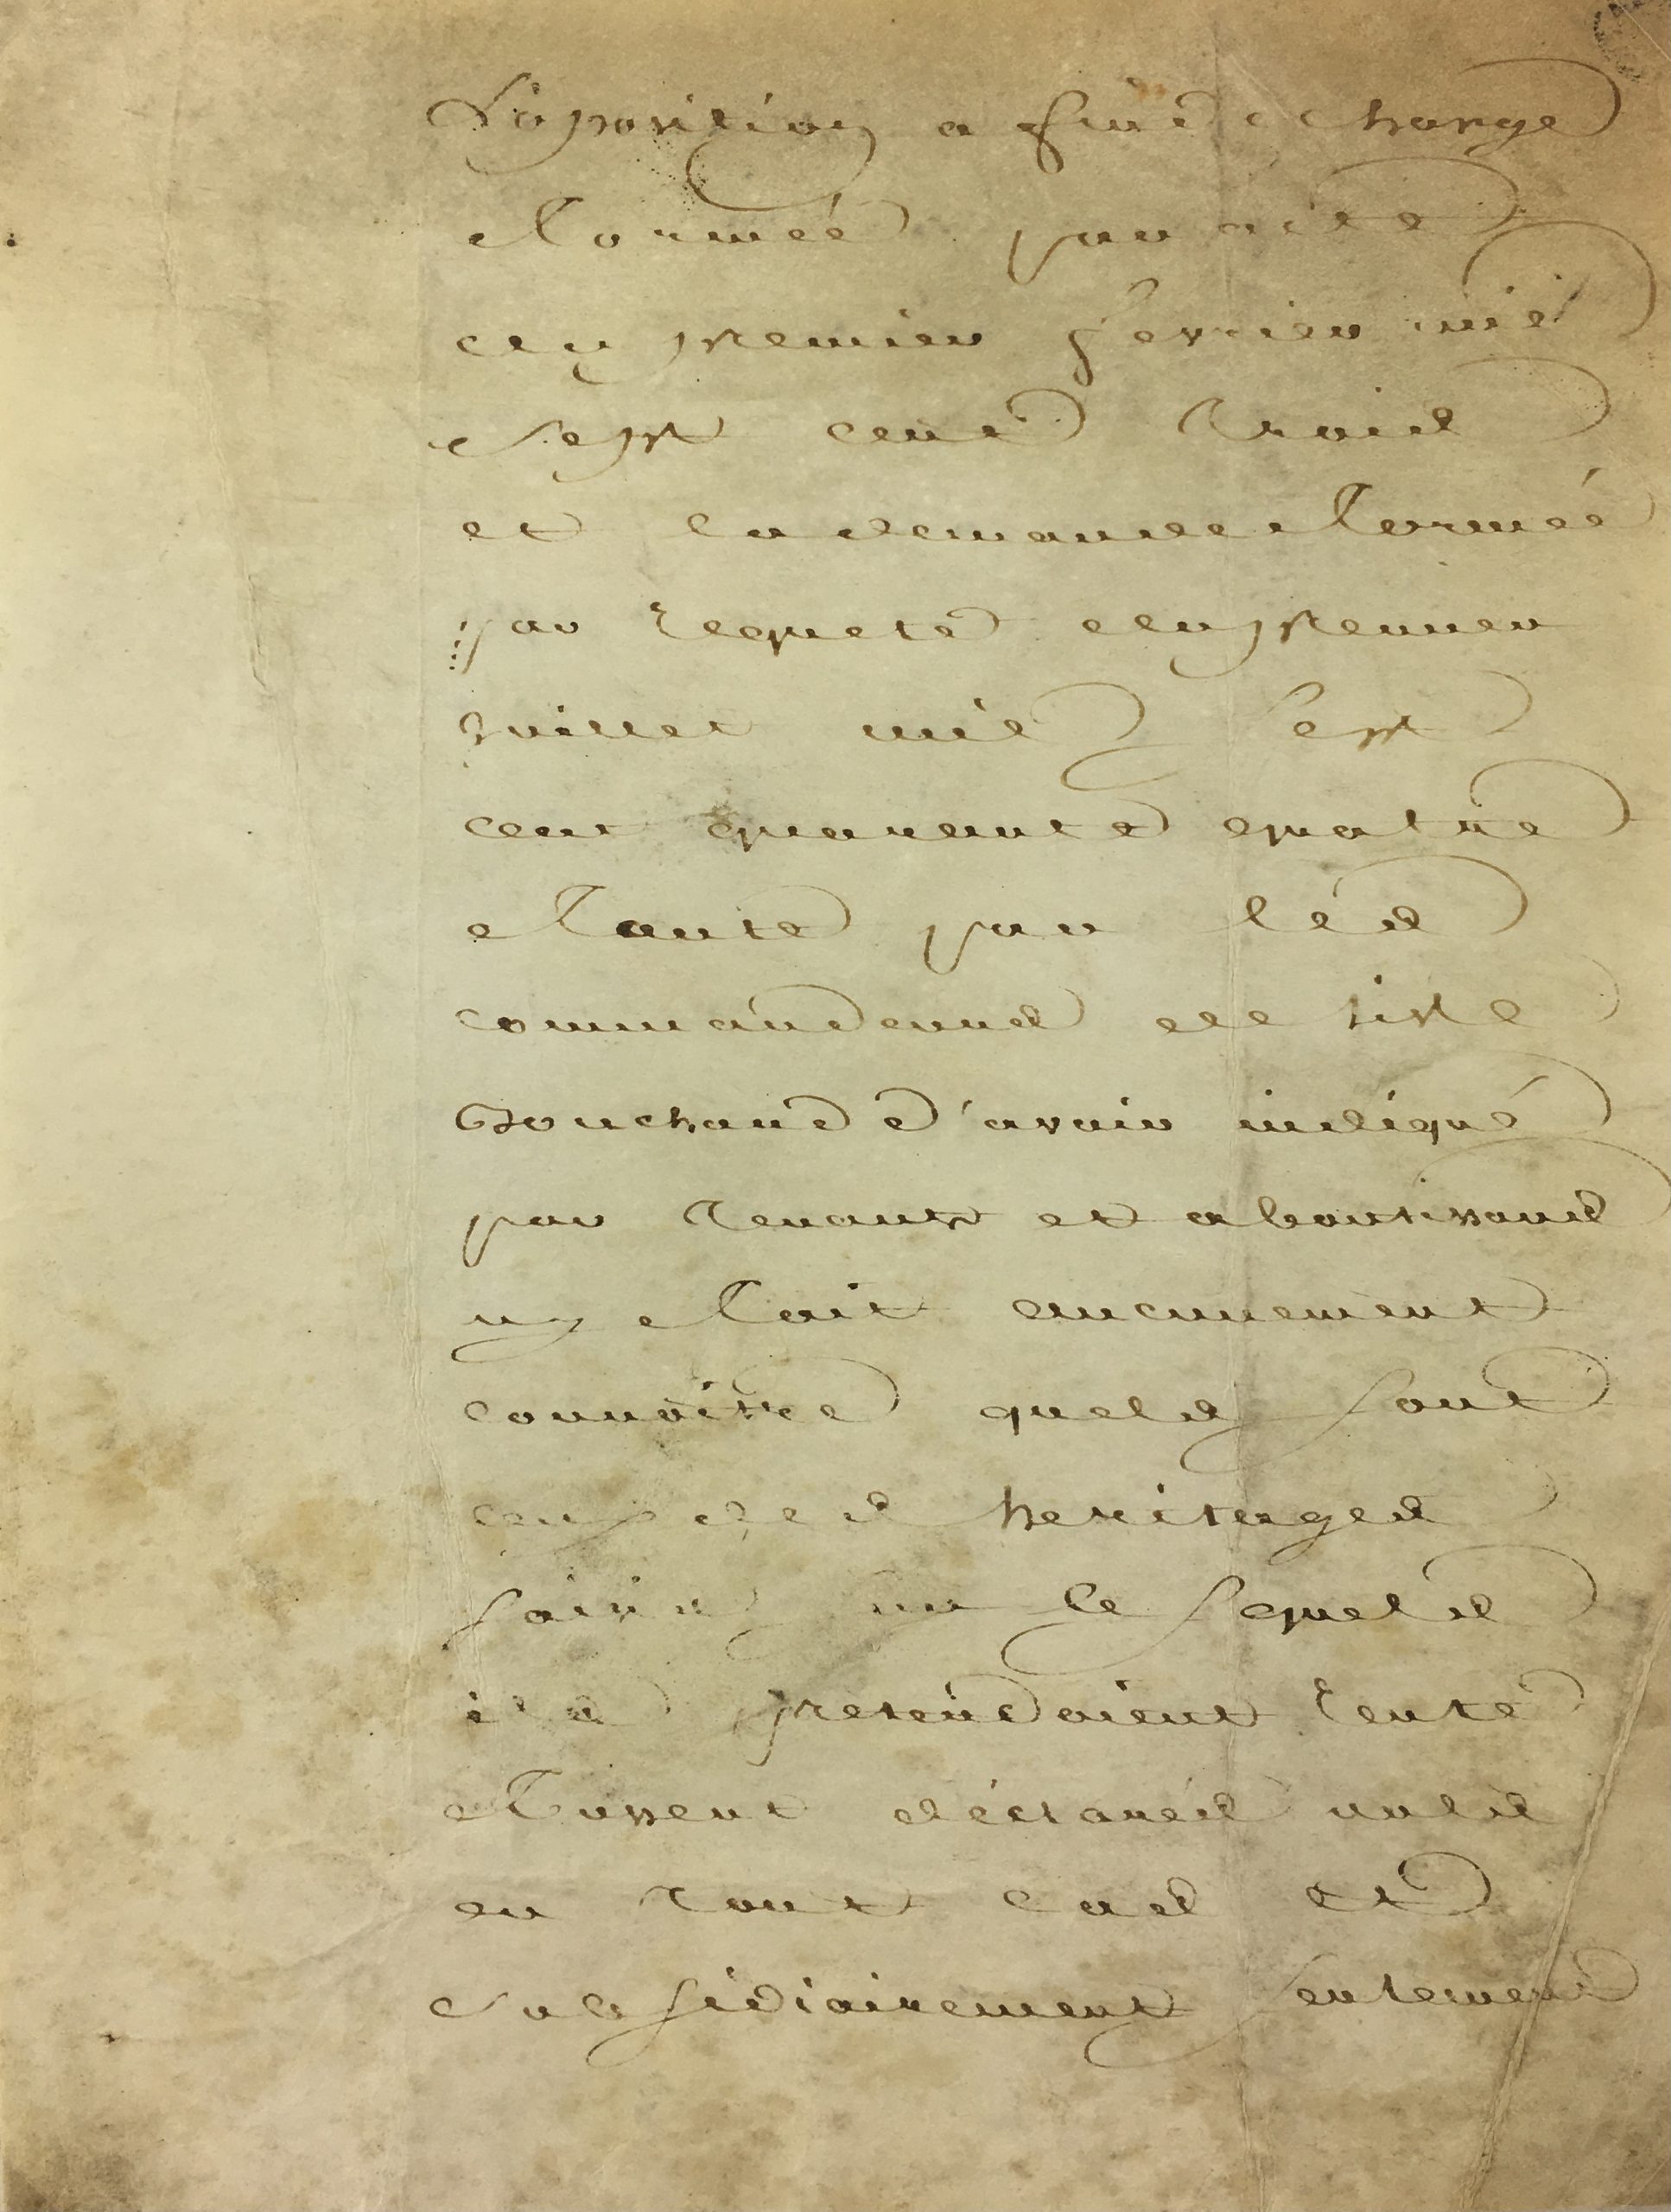 L'oposition a fin de charge
formeé par acte
du premier fevrier mil
sept cent trois
et la demande formeé
par requete du premier
Juillet mil sept
cent quarente quatre
faute par les
commandeurs de
Bouchaud d'avoir indiqué
par tenants et aboutissans
ny fait aucunement
connoitre quels sont
ceux des heritages
saisis sur lesquels
ils pretendoient rente
fussent déclarés nuls
en tout cas et
subsidiairement seulement